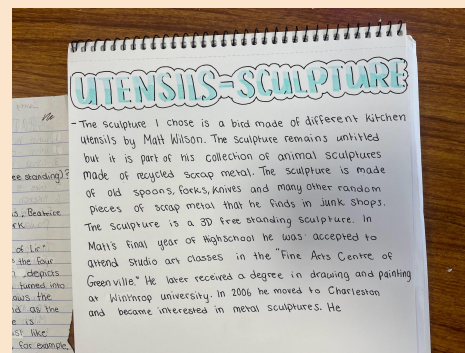 UTENSILS=SCULPTURE
- The sculpture I chose is a bird made of different kitchen
utensils by Matt Wilson. The sculpture remains untitled
but it is part of his collection of animal sculptures
made of recycled scrap metal. The sculpture is made
of old spoons, forks, knives and many other random
pieces of scrap metal that he finds in junk shops.
The sculpture is a 3D free standing sculpture. In
Matt's final year of Highschool he was accepted to
attend studio art classes in the "Fine Arts Centre of
Greenville." He later received a degree in drawing and painting
at Winthrop university. In 2006 he moved to Charleston
and became interested in metal sculptures. He
ee standing)?
s, Beatrice
rk
of Lir"
s the four
, depicts
turned into
ows the
d as the
e is
st like
, for example,